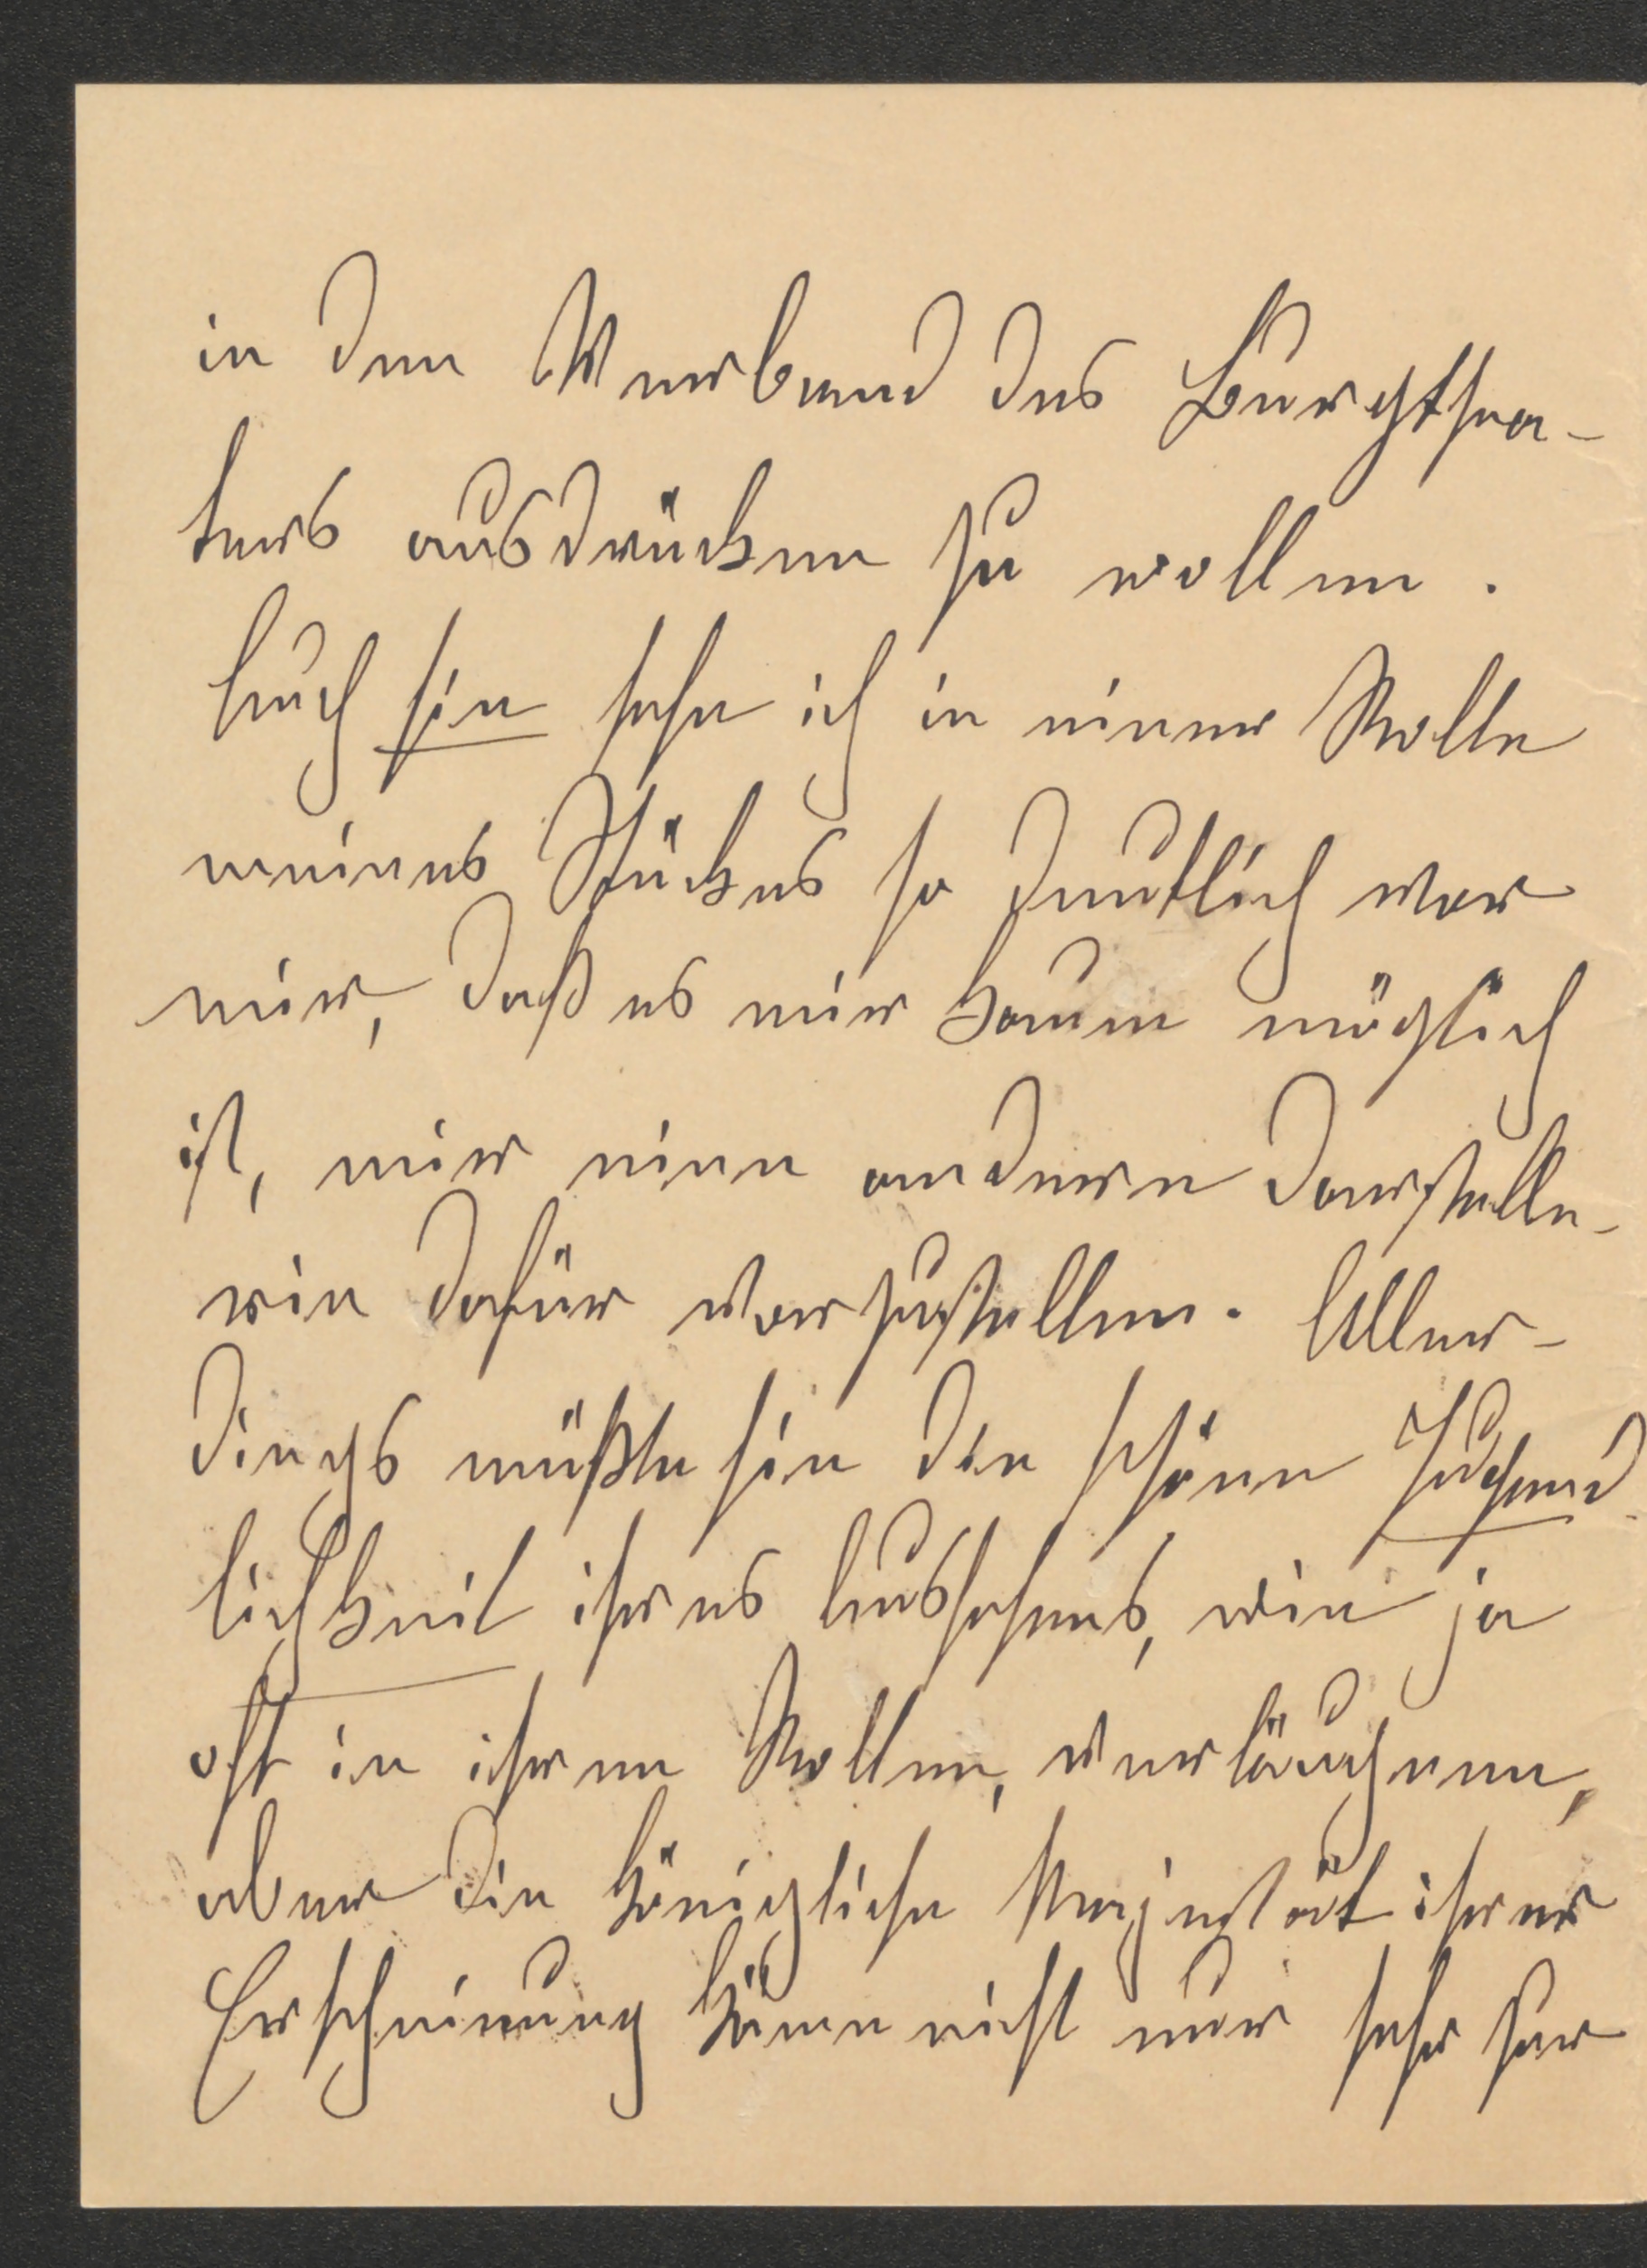 in den Verband des Burgthea-
ters ausdrücken zu wollen.
Auch sie sehe ich in einer Rolle
meines Stückes so deutlich vor
mir, daß es mir kaum möglich
ist, mir eine andere Darstelle-
rin dafür vorzustellen. Aller-
dings müßte sie die schöne Jugend-
lichkeit ihres Aussehens, wie ja
oft in ihren Rollen, verläugnen,
aber die königliche Majestät ihrer
Erscheinung käme nicht nur sehr zur